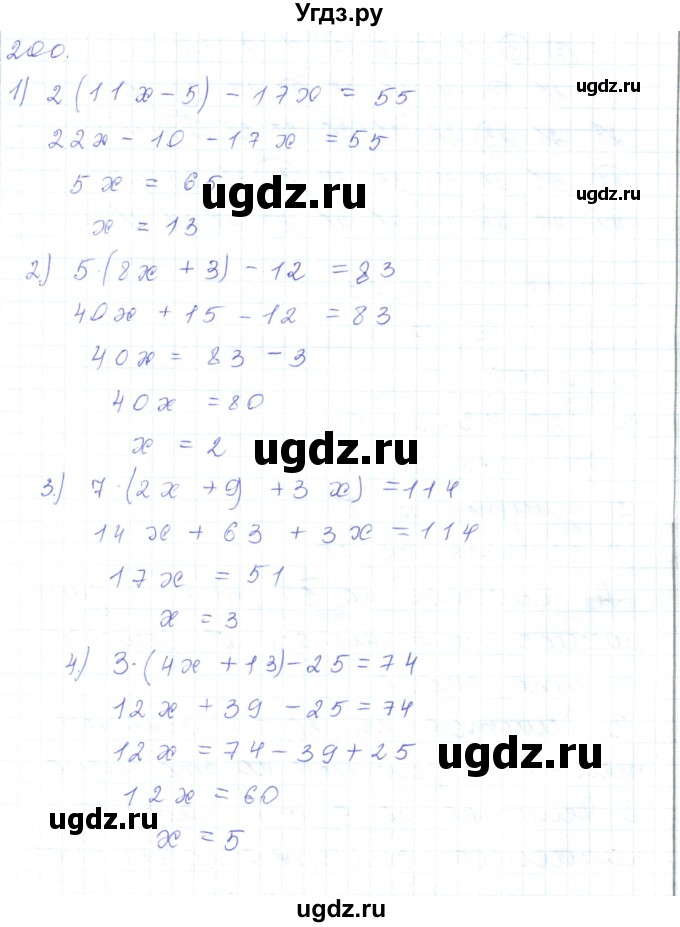 Угдз.ру
200.
1) 2(11x-5)-17x = 55
ugdz.ru
22x-10-17x = 55
5x = 65
ugdz.ru
ugdz.ru
x = 13
2) 5·(8x+3)-12 = 83
40x+15-12 = 83
40x = 83-3
40x = 80
x = 2
ugdz.ru
3.) 7·(2x+9) +3x) = 114
14x+63+3x = 114
17x = 51
x = 3
4) 3·(4x+13)-25 = 74
12x+39-25 = 74
12x = 74-39+25
ugdz.ru
12x = 60
ugdz.ru
x = 5
ugdz.ru